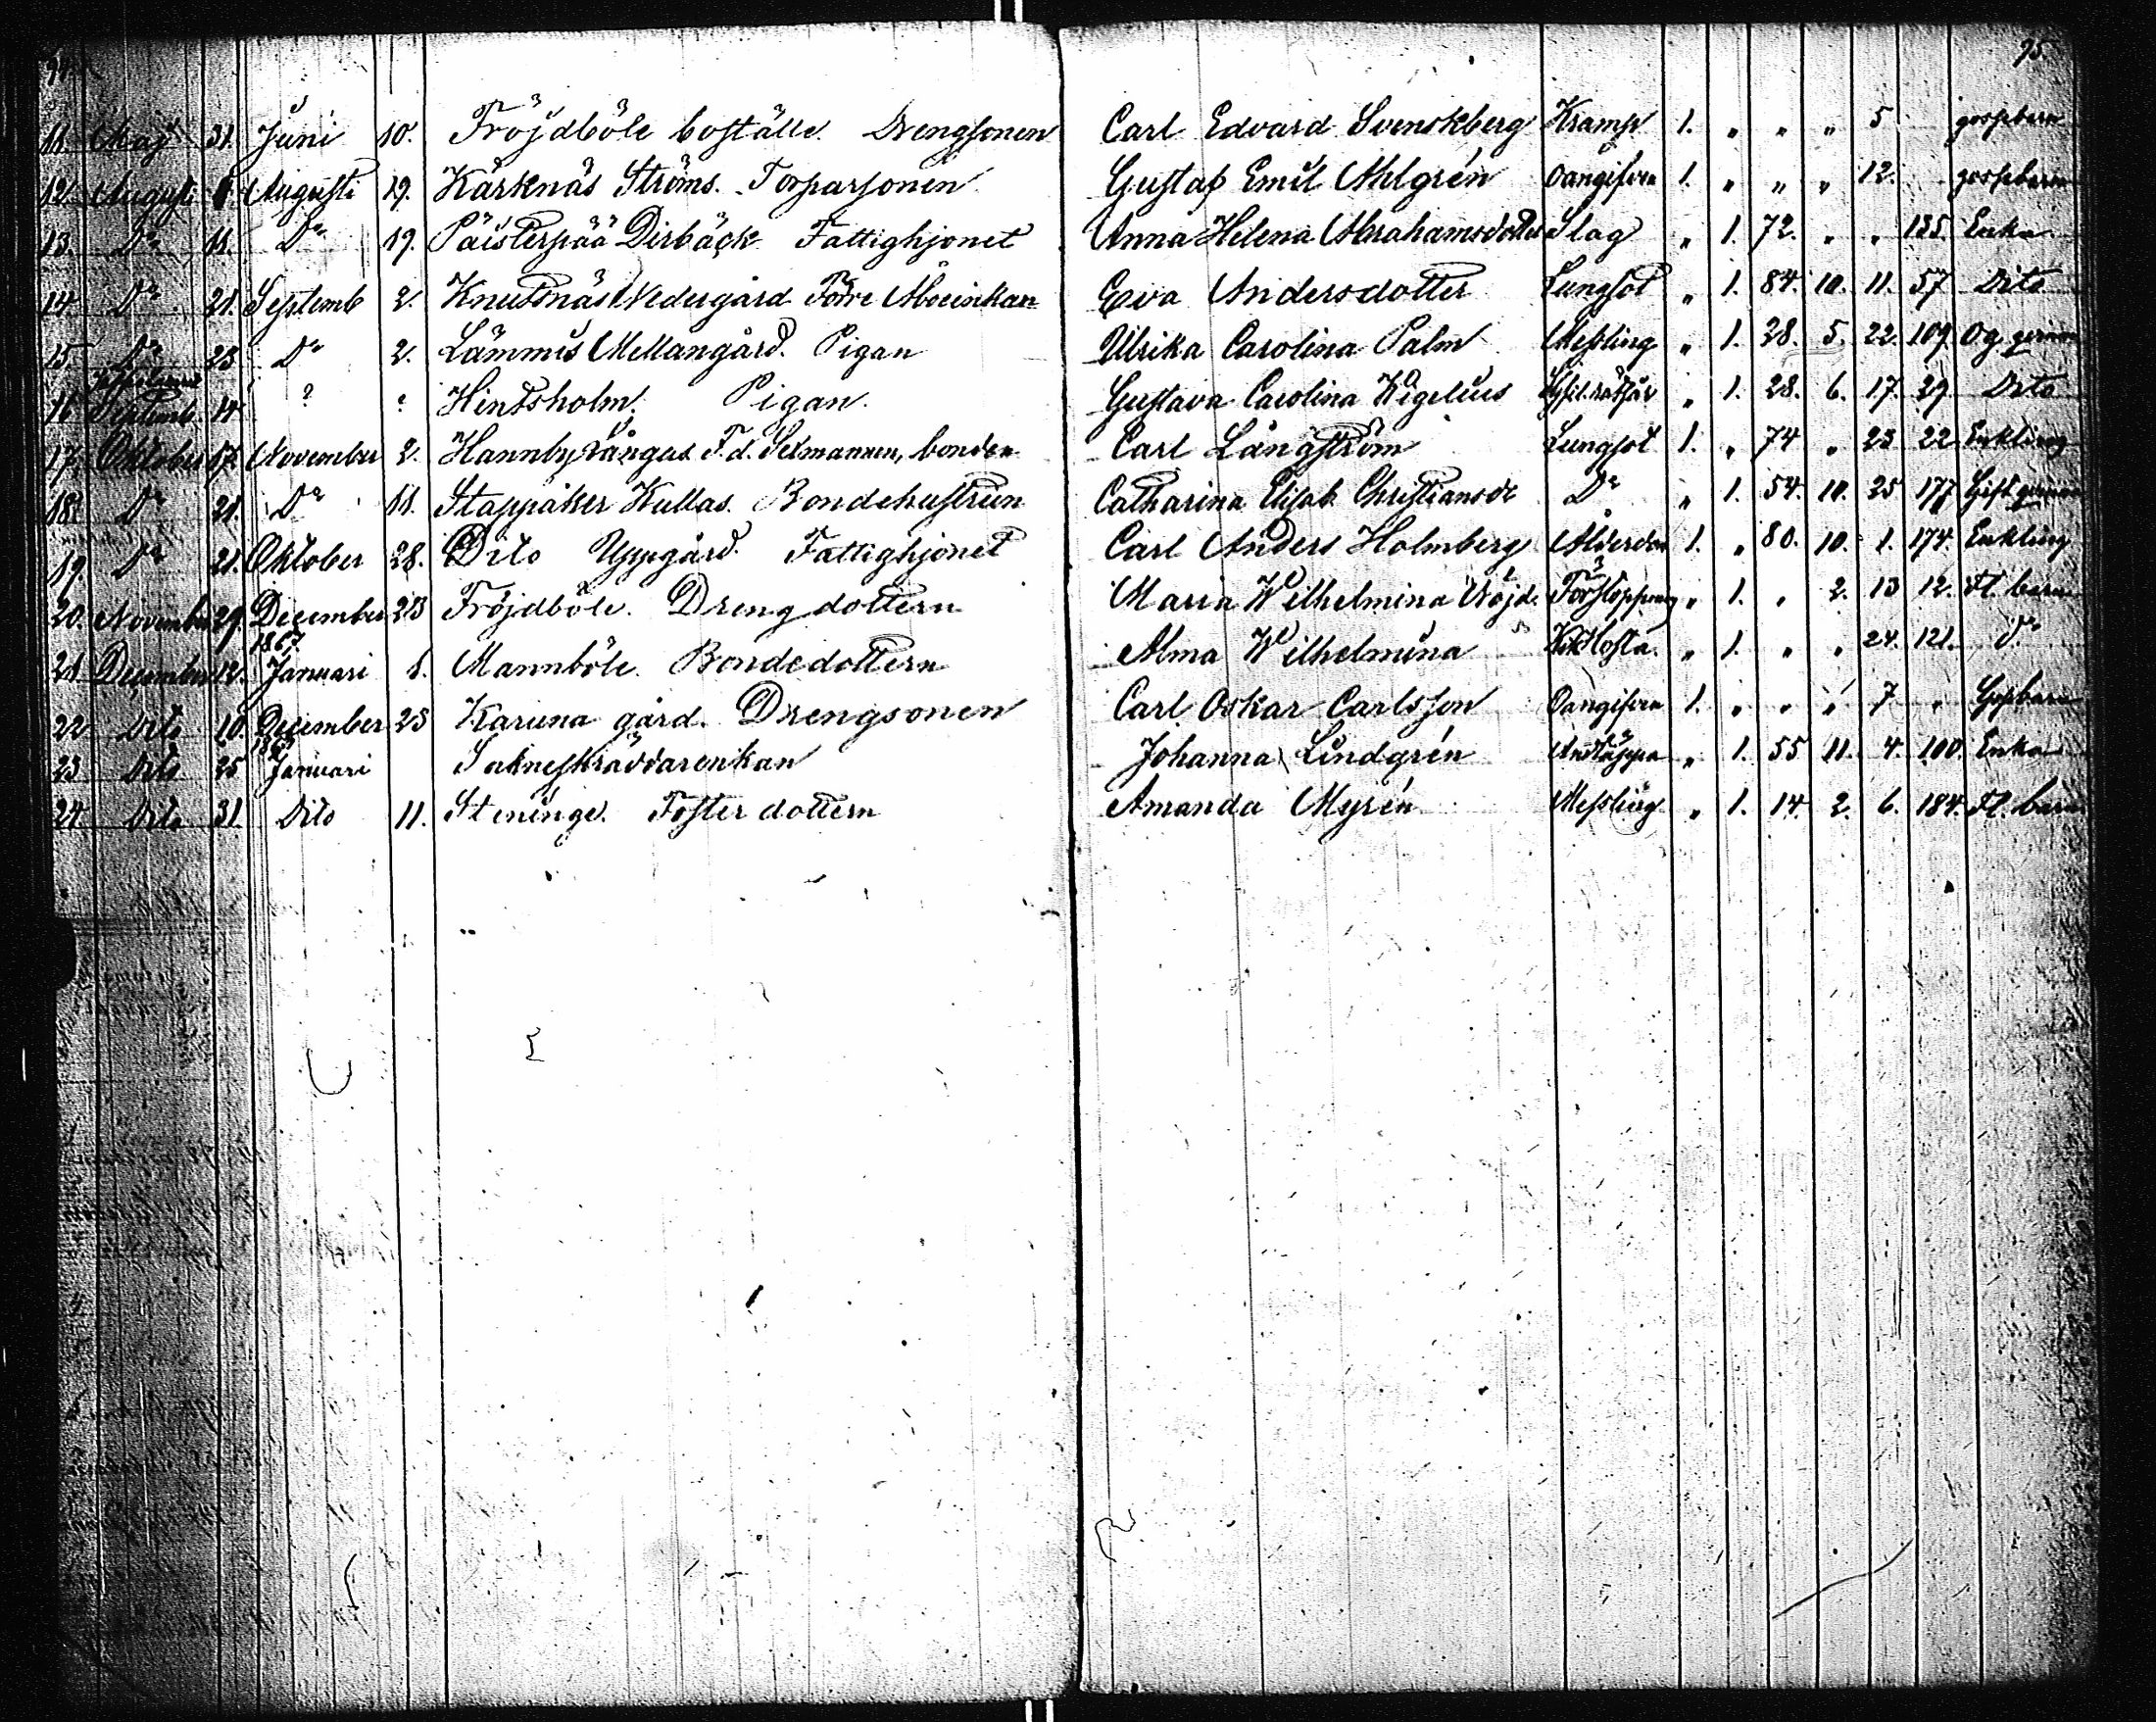 94. 95.
11. Maj 31. Juni 10. Fröjdböle boställe. Drengsonen Carl Edvard Svenskberg Kramp 1. " " " 5 gossebarn
12. Augusti Augusti 19. Kärknäs Ströms. Torparsonen Gustaf Emil Ahlgrén Oangifven 1. " " " 12. gossebarn
13. Do 11. Do 19. Päisterpää Dirbäck Fattighjonet Anna Helena Abrahamsdotter Slag " 1. 72. " " 135. Enka
14. Do 21. Septemb 2. Knutsnäs Nedergård Förre Åboenkan Eva Andersdotter Lungsot " 1. 84. 10. 11. 57 Dito
15. Do 23 Do 2. Lämmis Mellangård. Pigan Ulrika Carolina Palm Messling " 1. 28. 5. 22. 109. Og. qvinna
16 Septemb. 14 ? ? Hintsholm. Pigan. Gustava Carolina Wigelius " 1. 28. 6. 17. 29. Dito
17. Oktober 17. November 2. Hannby Långas F.d. Sexmannen, bonden Carl Långström Lungsot 1. " 74 " 23 22 Enkling
18. Do 21. Do 11. Stappåker Kullas. Bondehustrun Catharina Elisab. Christiansdr Do " 1. 54. 10. 25 177 Gift qvinna
19. Do 21. Oktober 28. Dito Uppgård. Fattighjonet Carl Anders Holmberg Ålderdom 1. " 80. 10. 1. 174. Enkling
20. November 29. December 23 Fröjdböle. Drengdottern Maria Wilhelmina Röjd. Förstoppning " 1. " 2. 13 12. Fl. barn
1867
21 December 12. Januari 1. Mannböle. Bondedottern Alma Wilhelmina Kikhosta. " 1. " " 24. 121. Do
22 Dito 10. December 25 Karuna gård. Drengsonen Carl Oskar Carlsson Oangifven 1. " " " 7 " Gossbarn
23 Dito 25 Januari Sakneskräddarenkan Johanna Lindgrén Andtäppa " 1. 55 11. 4. 100. Enka
24. Dito 31. Dito 11. Steninge. Fosterdottern Amanda Myrén Messling " 1. 14. 2. 6. 184. Fl. barn